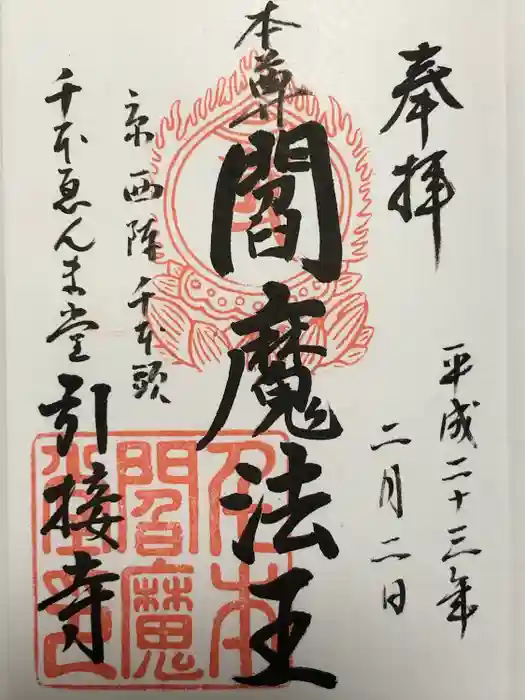 奉拝
平成二十三年
二月二日
本尊
閻魔法王
京西陣千本頭
千本ゑんま堂
引接寺
千本
閻魔